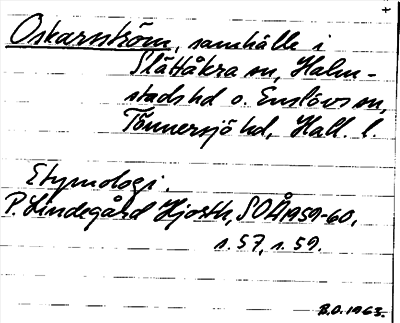 Oskarström, samhälle i
Slättåkra sn, Halm-
stads hd o. Enslövs sn,
Tönnersjö hd, Hall. l.
Etymologi.
P. Lindegård Hjorth, SOÅ 1959-60,
s. 57, s. 59.
B.O. 1963.